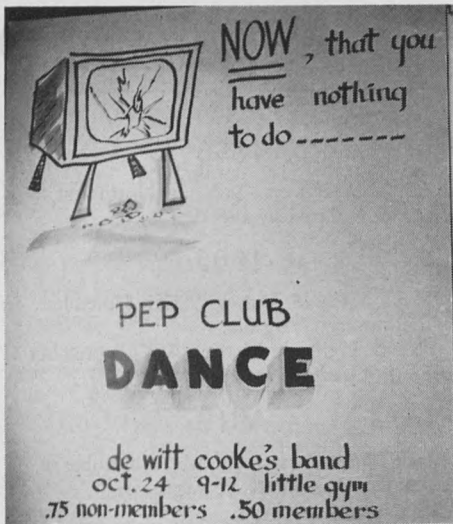 NOW, that you
have nothing
to do -------
PEP CLUB
DANCE
de witt cooke's band
oct. 24 9-12 little gym
.75 non-members .50 members